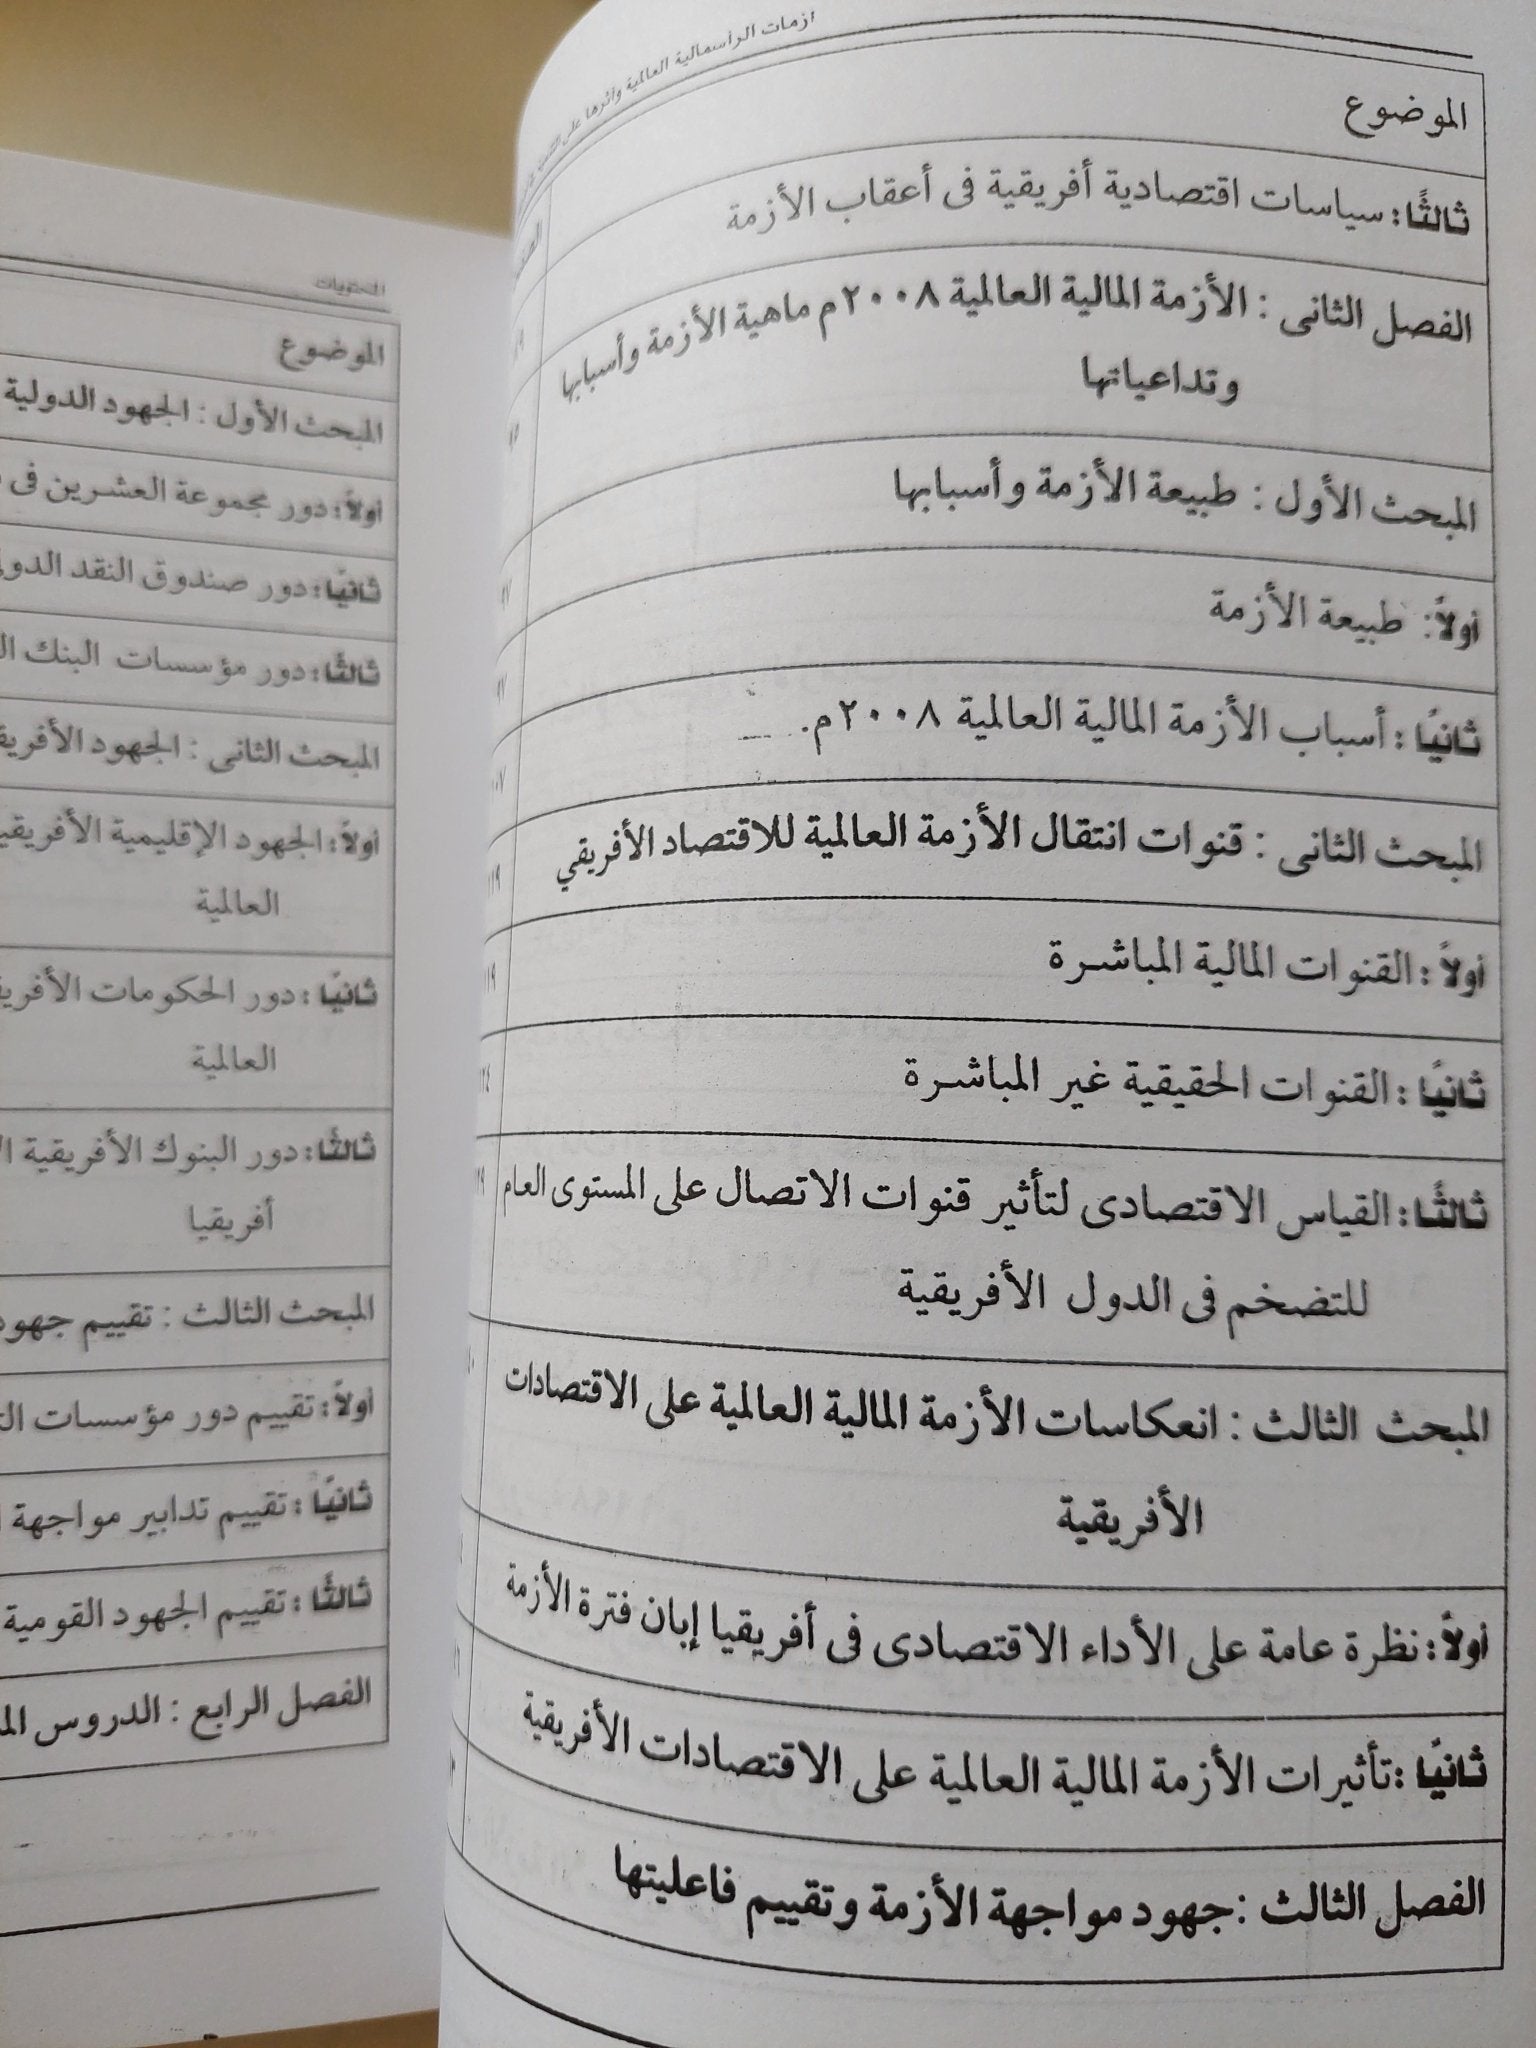 أزمات الرأسمالية العالمية وأثرها على
الموضوع
ثالثًا: سياسات اقتصادية أفريقية فى أعقاب الأزمة
الفصل الثانى : الأزمة المالية العالمية ٢٠٠٨م ماهية الأزمة وأسبابها
وتداعياتها
المبحث الأول : طبيعة الأزمة وأسبابها
أولاً: طبيعة الأزمة
ثانيًا : أسباب الأزمة المالية العالمية ٢٠٠٨م.
المبحث الثانى : قنوات انتقال الأزمة العالمية للاقتصاد الأفريقي
أولاً : القنوات المالية المباشرة
ثانيًا : القنوات الحقيقية غير المباشرة
ثالثًا : القياس الاقتصادى لتأثير قنوات الاتصال على المستوى العام
للتضخم فى الدول الأفريقية
المبحث الثالث : انعكاسات الأزمة المالية العالمية على الاقتصادات
الأفريقية
أولاً: نظرة عامة على الأداء الاقتصادى فى أفريقيا إبان فترة الأزمة
ثانيًا : تأثيرات الأزمة المالية العالمية على الاقتصادات الأفريقية
الفصل الثالث : جهود مواجهة الأزمة وتقييم فاعليتها
المحتويات
الموضوع
المبحث الأول : الجهود الدولية
أولاً: دور مجموعة العشرين فى
ثانيًا: دور صندوق النقد
ثالثًا: دور مؤسسات البنك
المبحث الثانى : الجهود
أولاً: الجهود الإقليمية
العالمية
ثانيًا : دور الحكومات
العالمية
ثالثًا: دور البنوك الأفريقية
أفريقيا
المبحث الثالث : تقييم
أولاً: تقييم دور مؤسسات
ثانيًا : تقييم تدابير مواجهة
ثالثًا : تقييم الجهود القومية
الفصل الرابع : الدروس